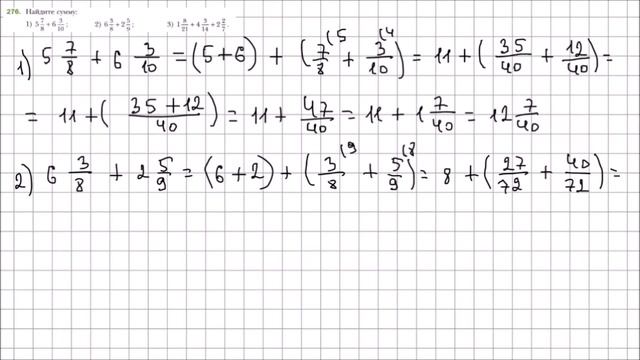 276. Найдите сумму:
1) 5 7/8 + 6 3/10; 2) 6 3/8 + 2 5/9; 3) 1 8/21 + 4 3/14 + 2 2/7.
1) 5 7/8 + 6 3/10 = (5+6) + (7/8 (5 + 3/10 (4) = 11 + (35/40 + 12/40) =
= 11 + ( 35+12/40 ) = 11 + 47/40 = 11 + 1 7/40 = 12 7/40
2) 6 3/8 + 2 5/9 = (6+2) + (3/8 (9 + 5/9 (8) = 8 + (27/72 + 40/72) =